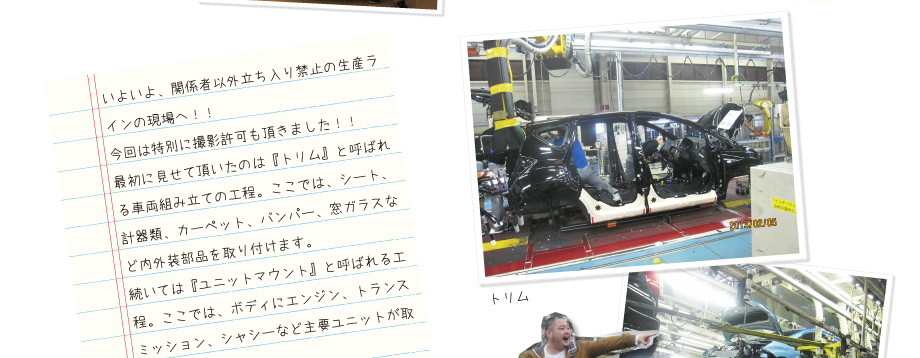 いよいよ、関係者以外立ち入り禁止の生産ラ
インの現場へ！！
今回は特別に撮影許可も頂きました！！
最初に見せて頂いたのは『トリム』と呼ばれ
る車両組み立ての工程。ここでは、シート、
計器類、カーペット、バンパー、窓ガラスな
ど内外装部品を取り付けます。
続いては『ユニットマウント』と呼ばれる工
程。ここでは、ボディにエンジン、トランス
ミッション、シャシーなど主要ユニットが取
トリム